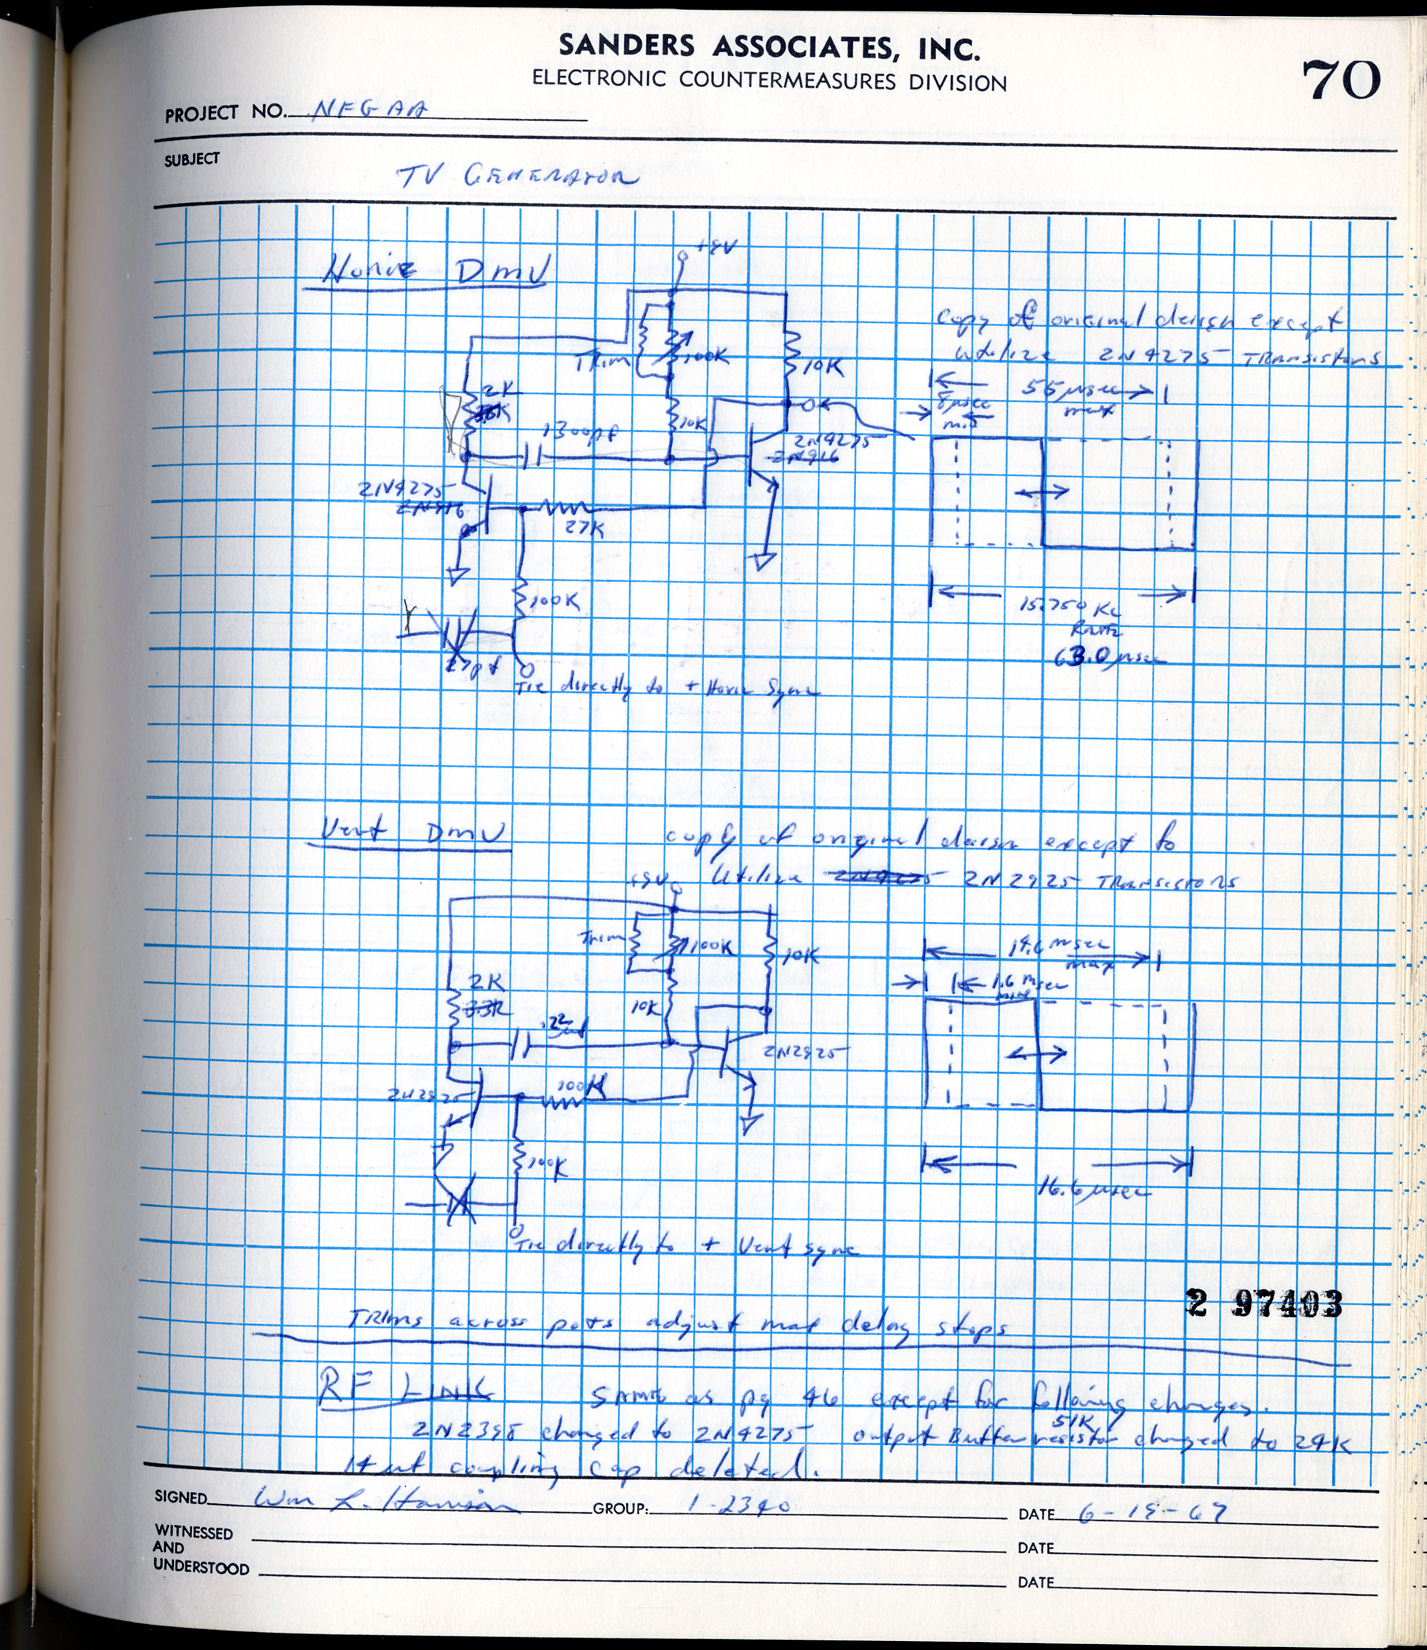 SANDERS ASSOCIATES, INC.
ELECTRONIC COUNTERMEASURES DIVISION
70
PROJECT NO. NFGAA
SUBJECT
TV GENERATOR
Horiz DMV
+9V
Trim
100K
10K
2K
1300pf
10K
2N4275
2N916
2N4275
2N916
27K
100K
27pf
Tie directly to + Horiz Sync
copy of original design except
utilize 2N4275 TRANSISTORS
55 µsec
max
8µsec
min
15.750 Kc
Rate
63.0 µsec
Vert DMV
copy of original design except to
Utilize 2N4275 2N2925 TRANSISTORS
+9V
Trim
100K
10K
2K
3.3K
10K
.22
2N2925
2N2925
100K
100K
Tie directly to + Vert sync
14.6 msec
max
1.6 msec
min
16.6 µsec
2 97403
TRIMS across pots adjust max delay stops
RF LINK same as pg 46 except for following changes.
51K
2N2398 changed to 2N4275 output Buffer resistor changed to 24K
coupling cap deleted.
SIGNED Wm L. Harrison GROUP: 1-2340 DATE 6-19-67
WITNESSED
AND
UNDERSTOOD
DATE
DATE